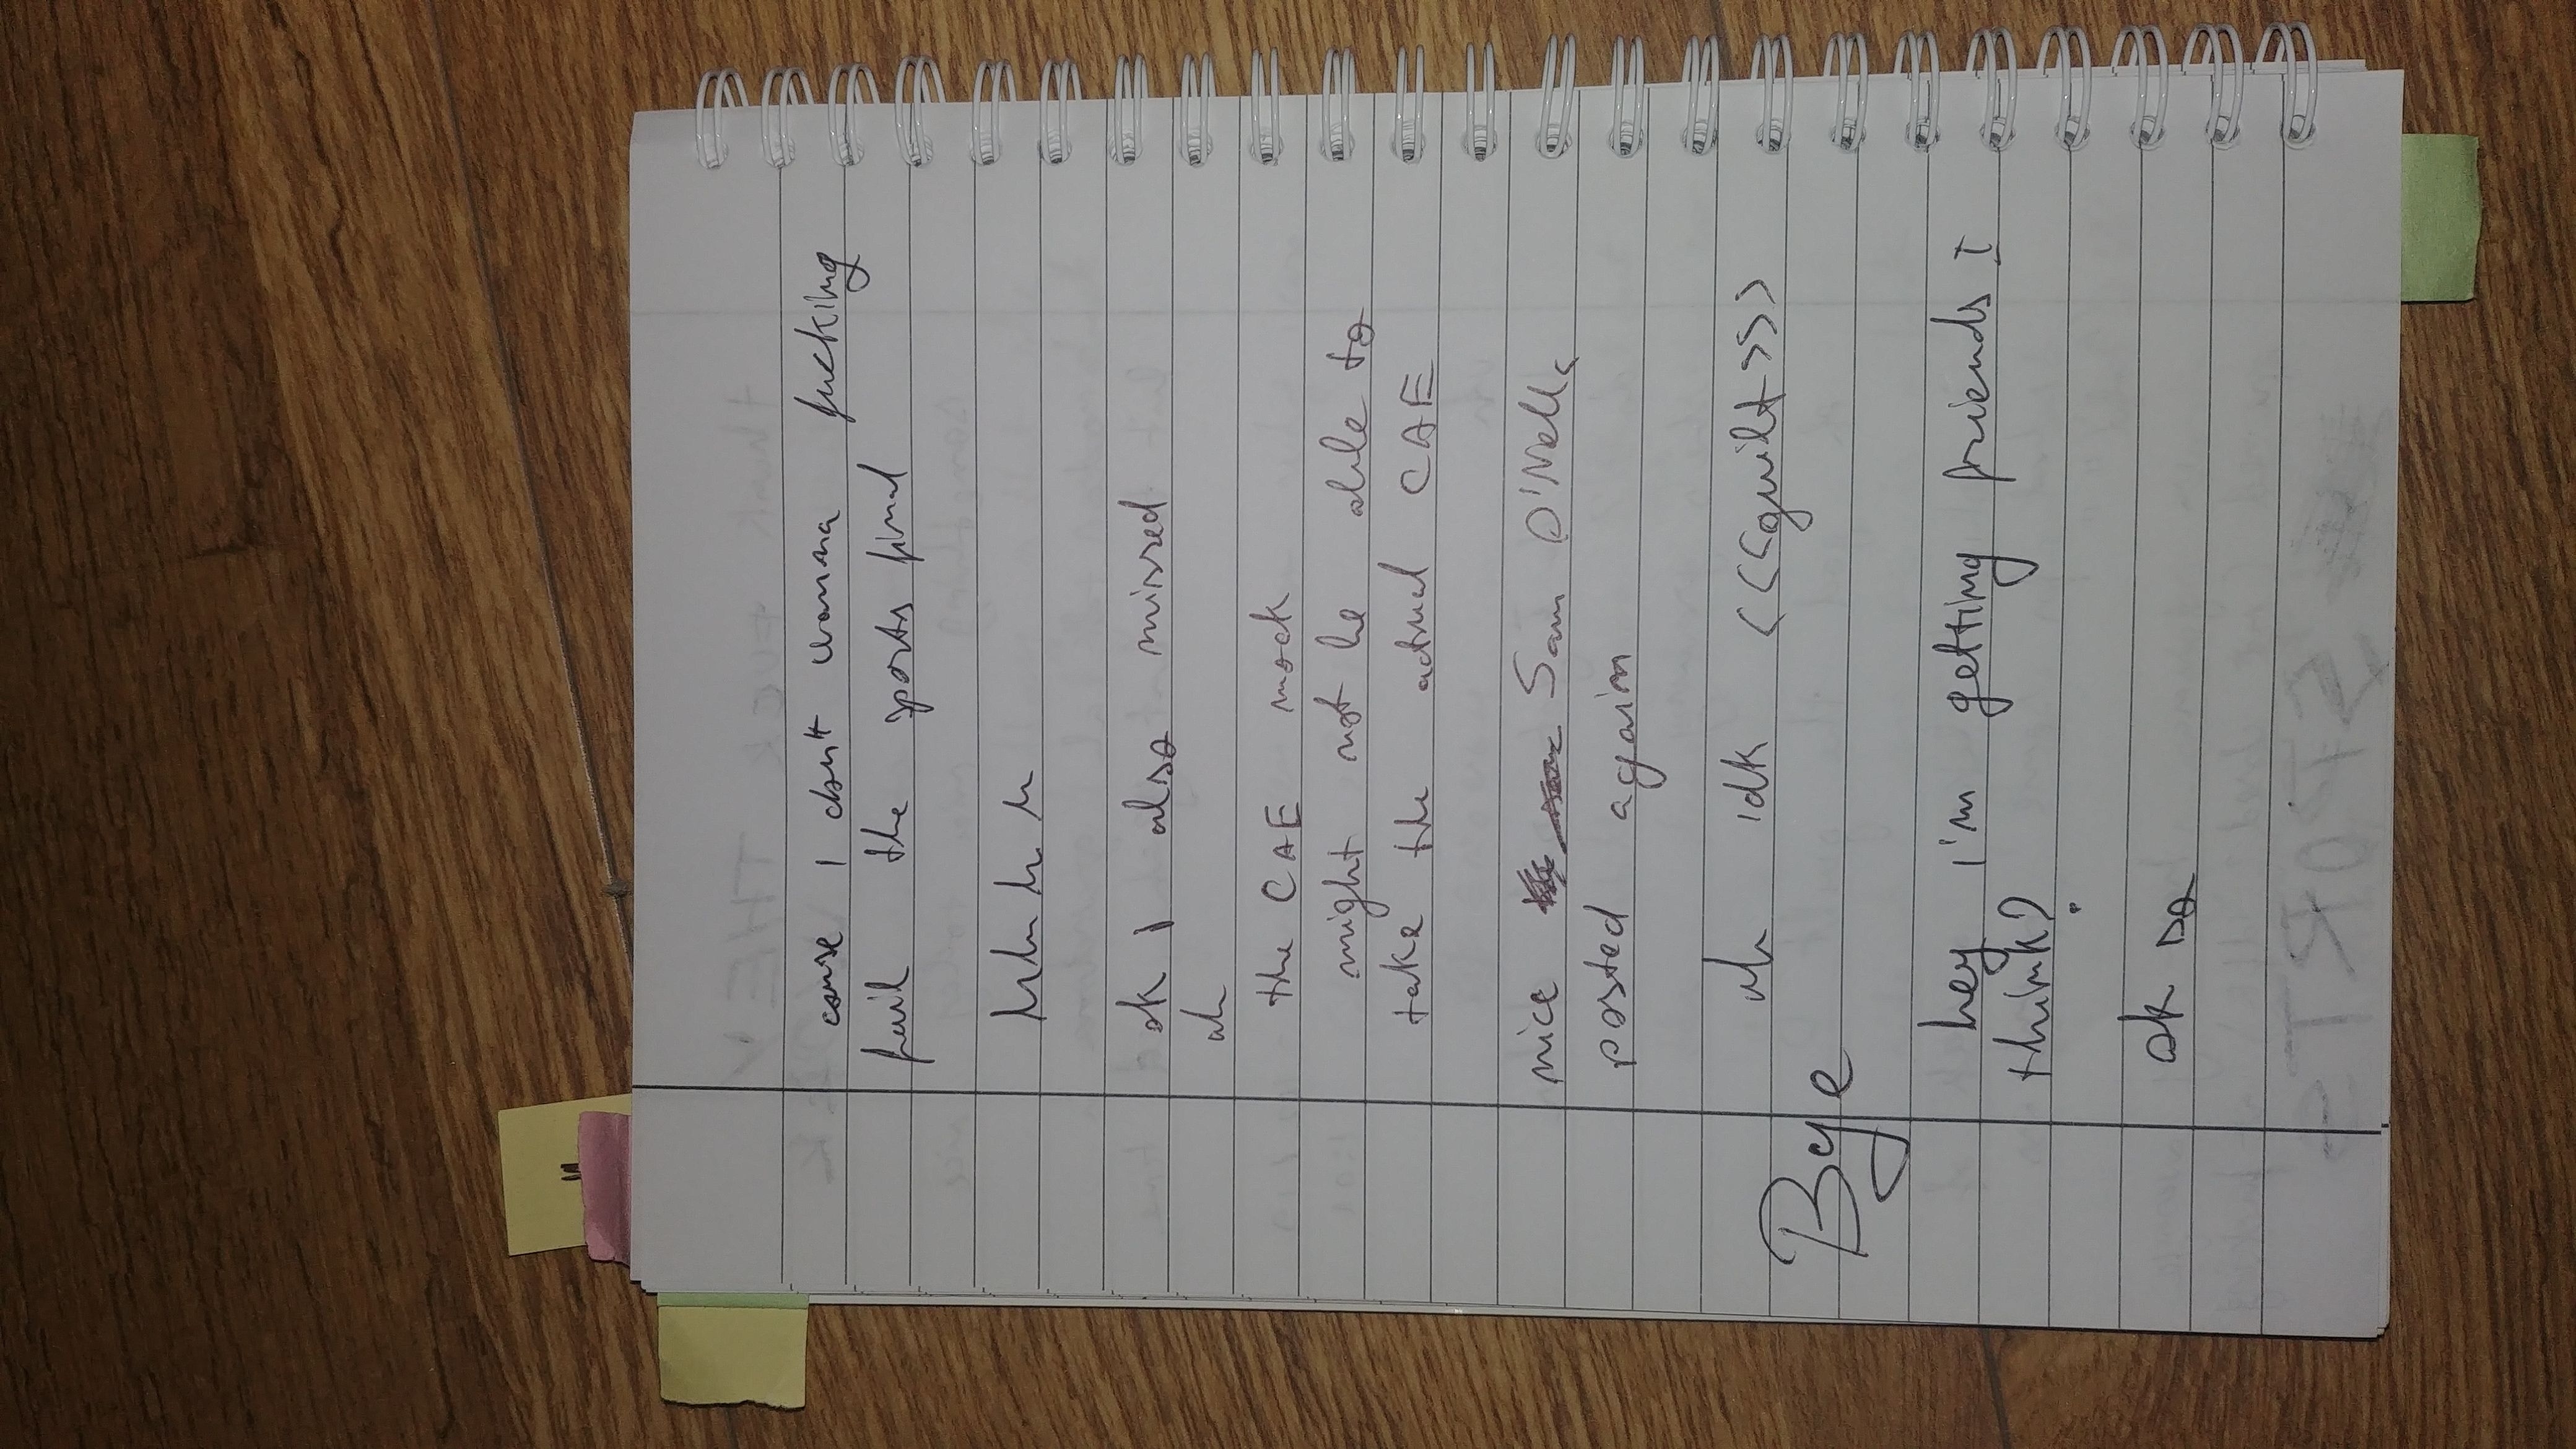 cause I don't wanna fucking
fail the sports final
hhhh
ok I also missed
uh
the CAE mock
might not be able to
take the actual CAE
nice Sam O'Nella
posted again
uh idk <<<guilt>>>
Bye
hey i'm getting friends I
think?
ok so